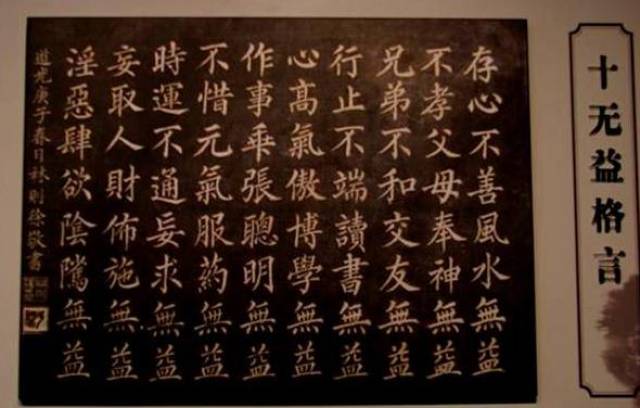 十无益格言
存心不善風水無益
不孝父母奉神無益
兄弟不和交友無益
行止不端讀書無益
心高氣傲博學無益
作事乖張聰明無益
不惜元氣服药無益
時運不通妄求無益
妄取人財佈施無益
淫惡肆欲陰騭無益
道光庚子春日林則徐敬書